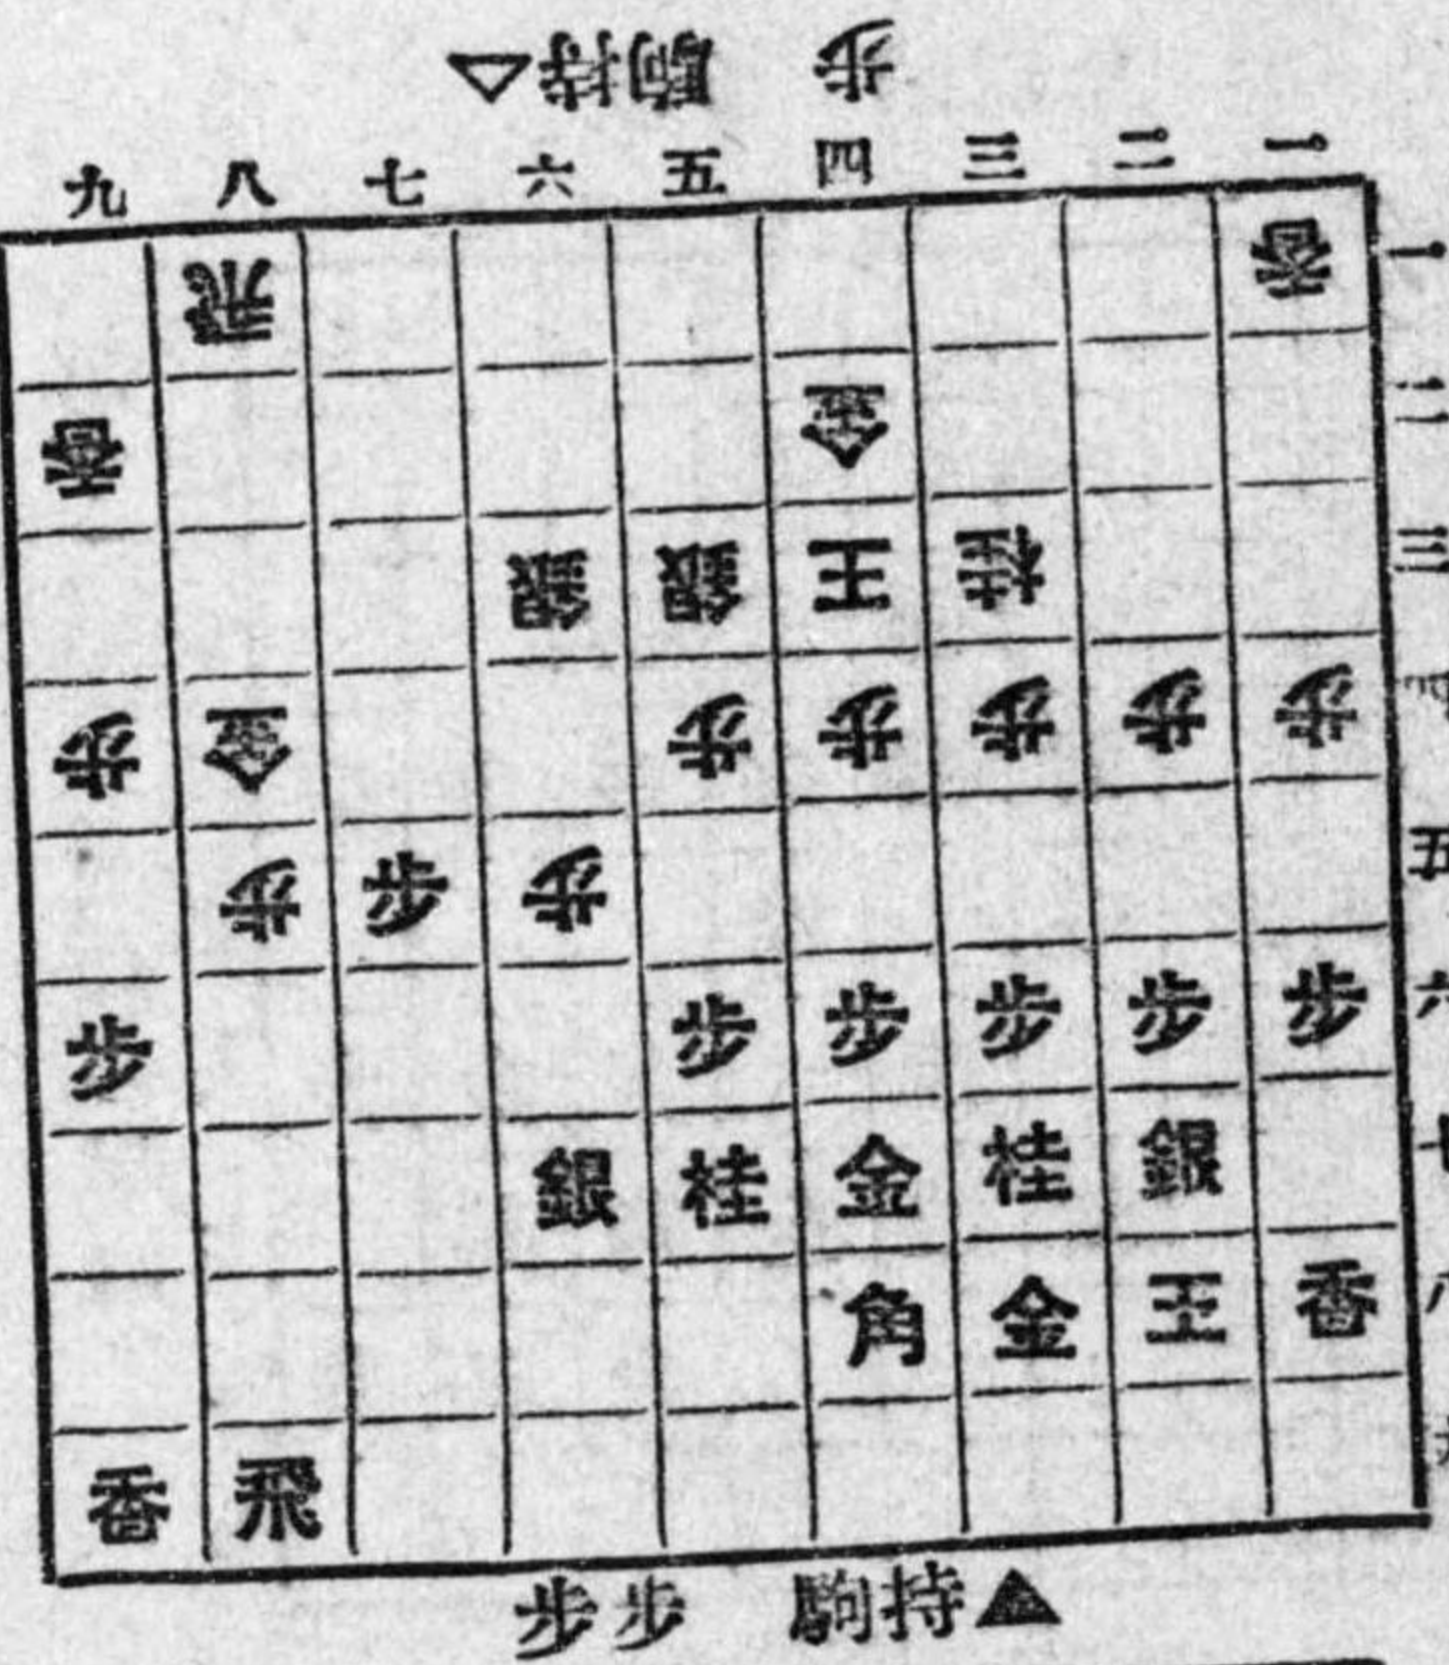 △持駒 歩
九 八 七 六 五 四 三 二 一
飛 香 一
香 金 二
銀 銀 王 桂 三
歩 金 歩 歩 歩 歩 歩
歩 歩 歩 五
歩 歩 歩 歩 歩 歩 六
銀 桂 金 桂 銀 七
角 金 王 香 八
香 飛
歩歩 駒持▲